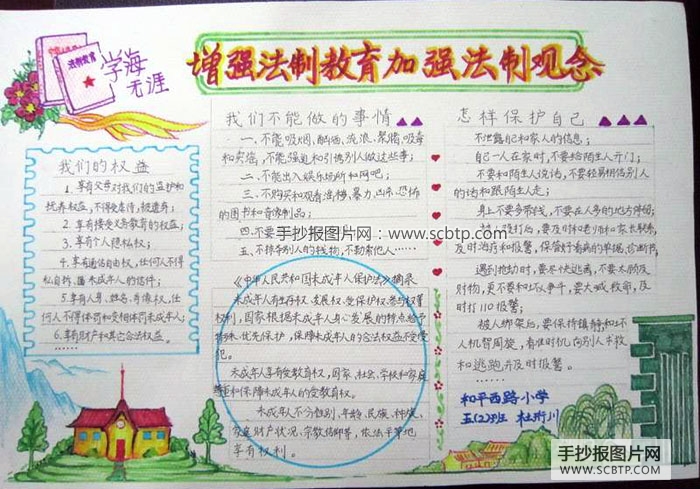 增强法制教育加强法制观念
法制教育
学海
无涯
我们的权益
1.享有父母对我们的监护和
抚养权益,不得虐待,被遗弃;
2.享有接受义务教育的权益;
3.享有个人隐私权;
4.享有通信自由权,任何人不得
私自拆
未成年人的信件;
5.享有人身、姓名、肖像权,任
何人不得体罚和变相体罚未成年人;
6.享有财产和其它合法权益。
……
我们不能做的事情
一、不能吸烟、酗酒、流浪、聚赌、吸毒
和卖淫,不能强迫和引诱别人做这些事;
二、不能出入娱乐场所和网吧;
三、不购买和观看淫秽、暴力、凶杀、恐怖
的图书和音像制品;
四.不要
五、不抢夺别人的钱物,不勒索他人……
《中华人民共和国未成年人保护法》摘录
未成年人享有生存权、发展权、受保护权、参与权等
权利,国家根据未成年人身心发展的特点给予
特殊、优先保护,保障未成年人的合法权益不受侵
犯。
未成年人享有受教育权,国家、社会、学校和家庭
尊重和保障未成年人的受教育权。
未成年人不分性别、年龄、民族、种族、
家庭财产状况、宗教信仰等,依法平等地
享有权利。
怎样保护自己
不泄露自己和家人的信息;
自己一人在家时,不要给陌生人开门;
不要和陌生人说话,不要轻易相信别人
的话和跟陌生人走;
身上不要多带钱,不要在人多的地方停留;
后,要及时和老师和家长联系,
及时治疗和报警,保管好看病的单据、诊断书;
遇到抢劫时,要尽快逃离,不要太顾及
财物,更不要和坏人争斗,要大喊救命,及
时打110报警;
被人绑架后,要保持镇静和坏
人机智周旋,看准时机向别人求救
和逃跑并及时报警。
……
和平西路小学
五(2)班 杜珩川
手抄报图片网:www.scbtp.com
手抄报图片网
WWW.SCBTP.COM